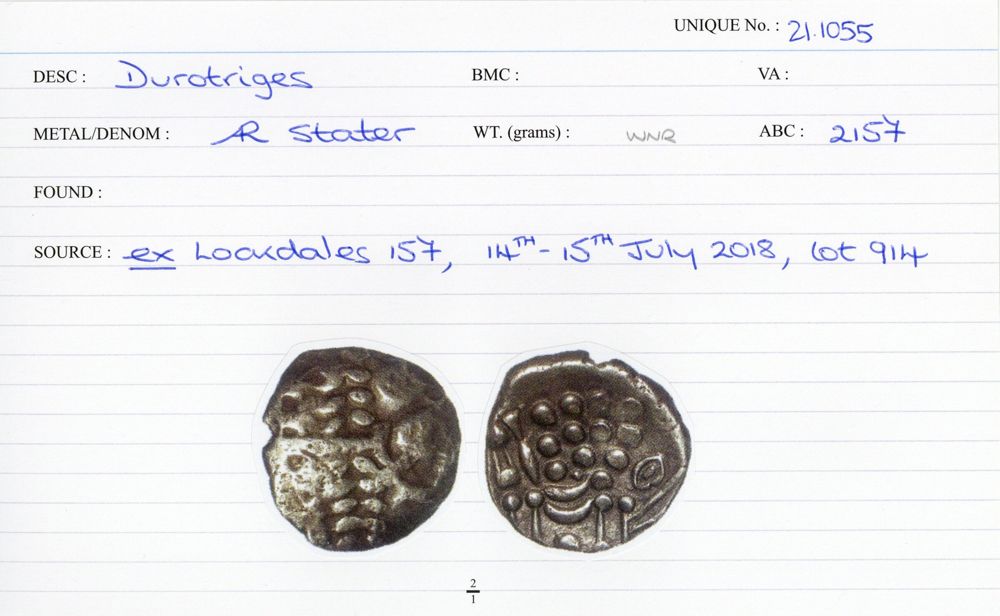 UNIQUE No. : 21.1055
DESC : Durotriges BMC : VA :
METAL/DENOM : AR Stater WT. (grams) : WNR ABC : 2157
FOUND :
SOURCE : ex Lockdales 157, 14TH - 15TH July 2018, lot 914
2
1